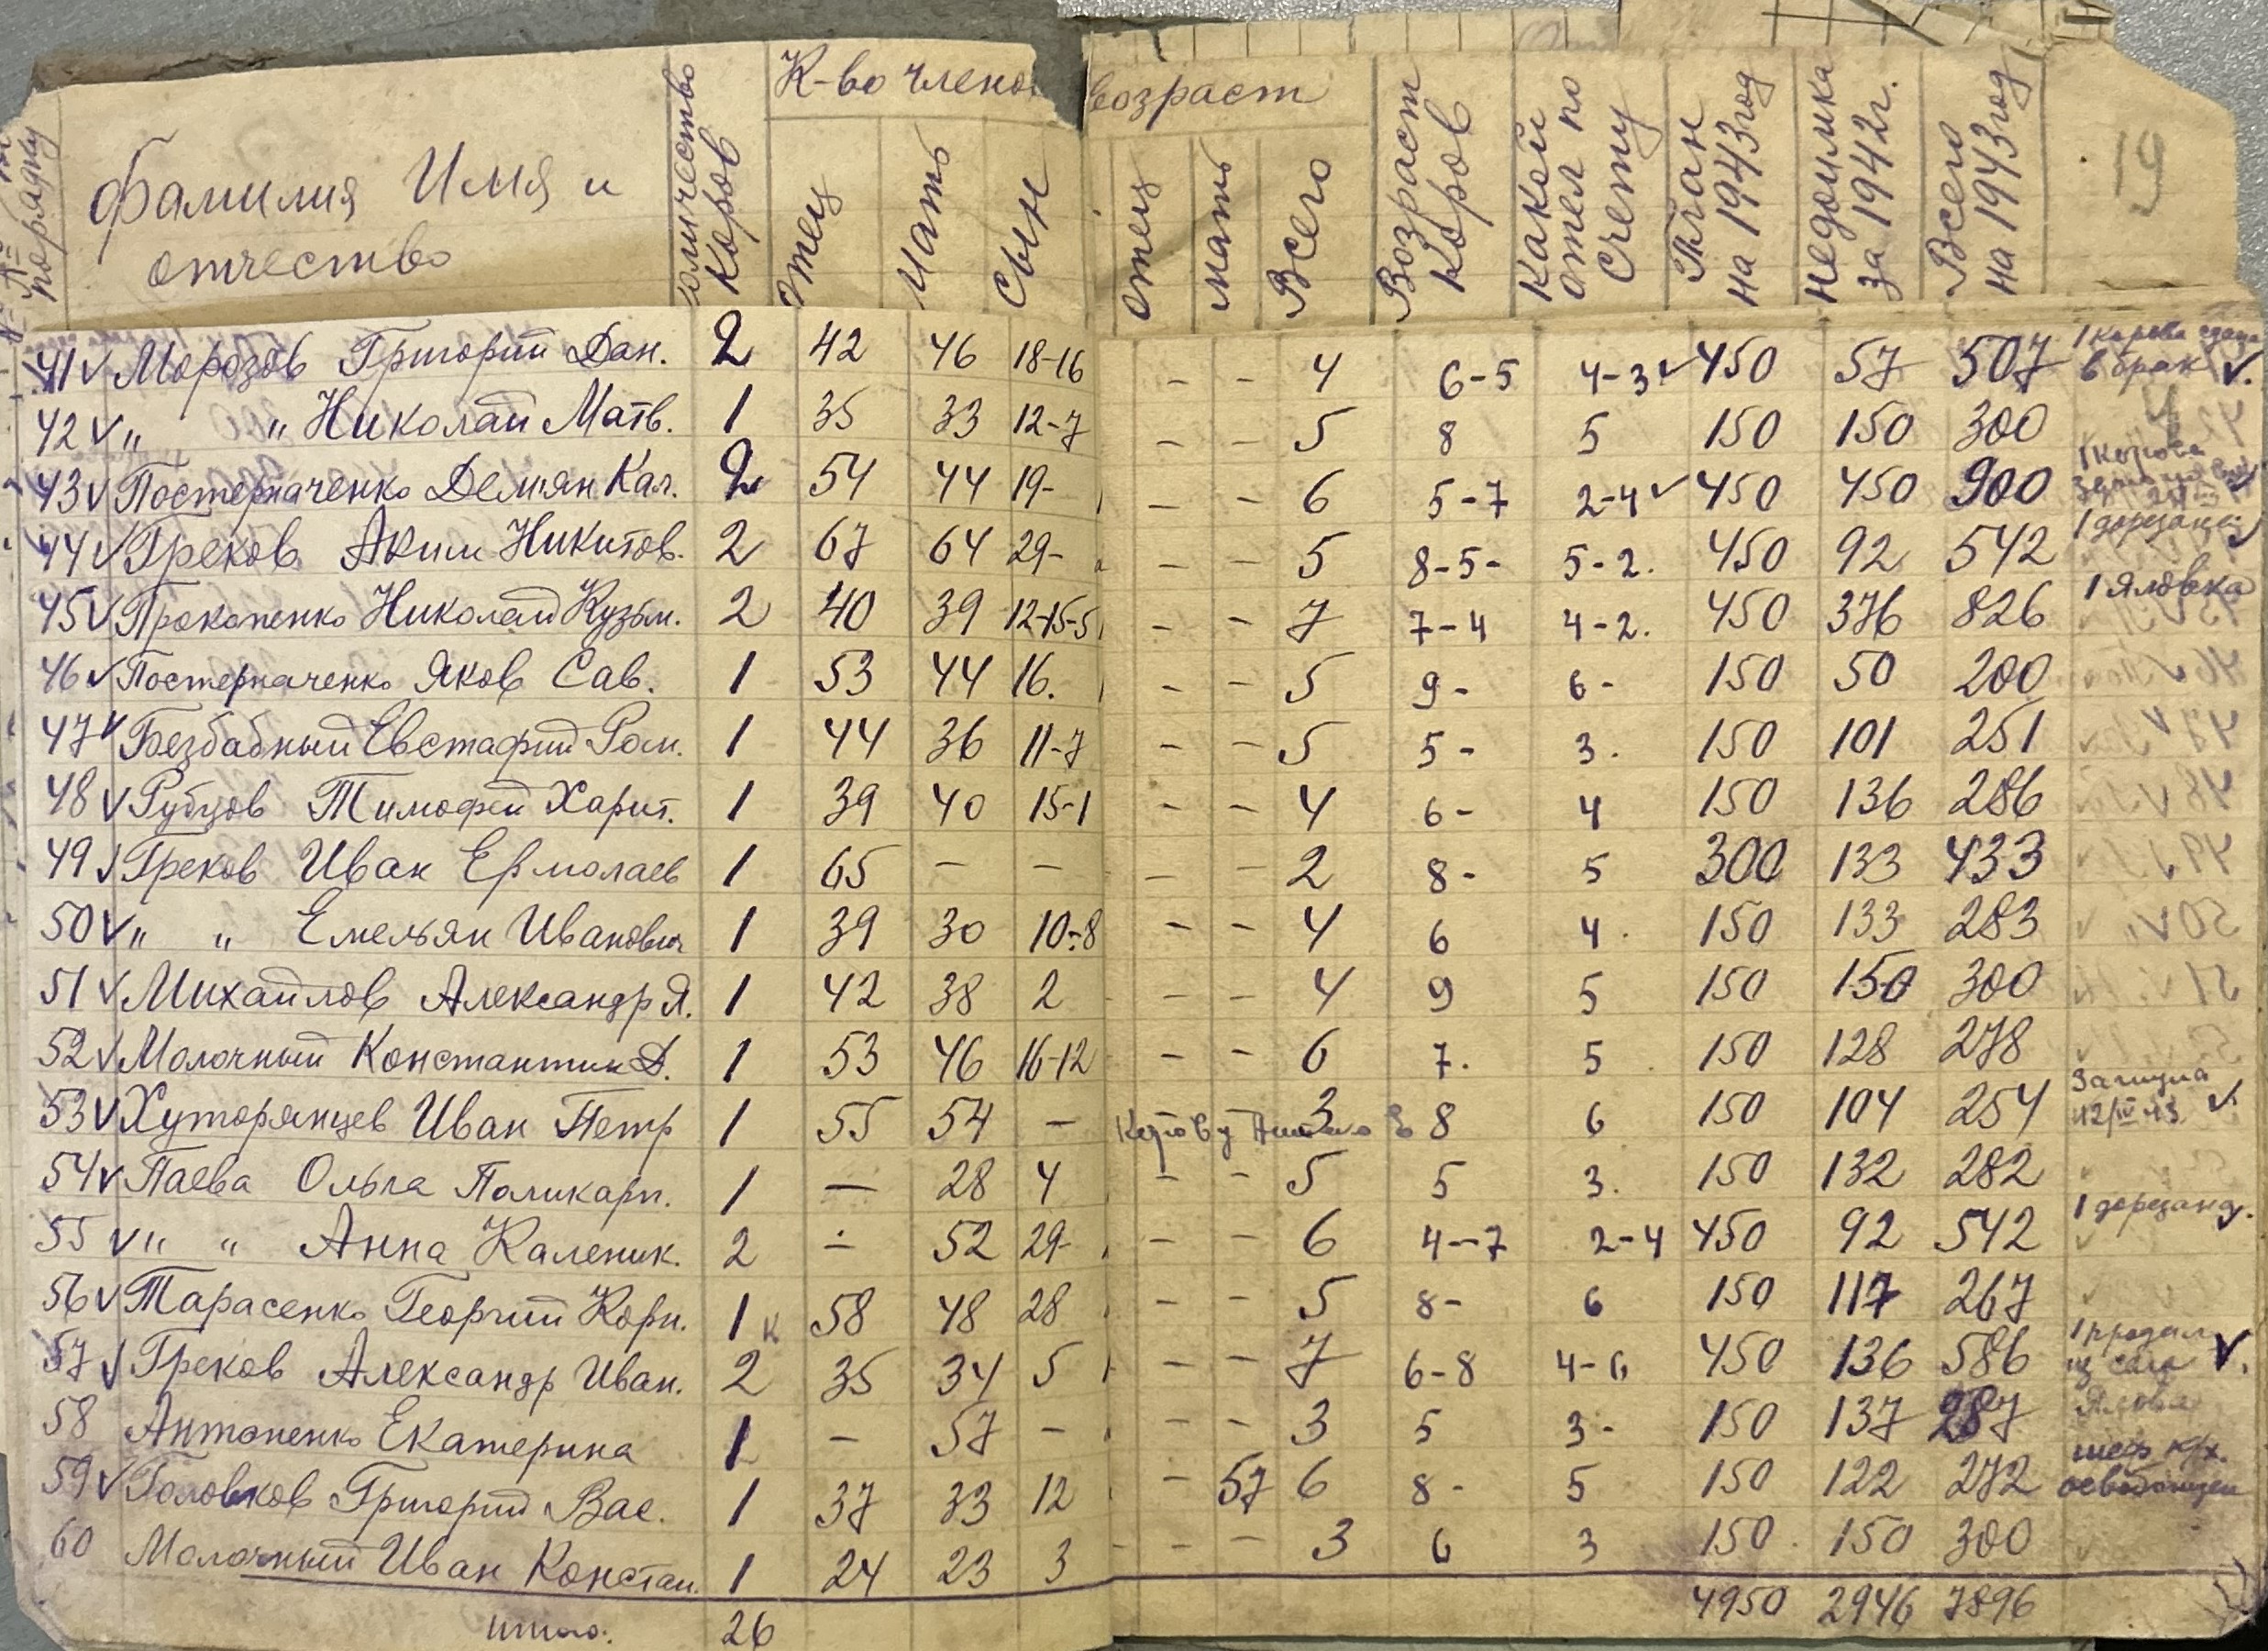 К-во члено возраст
№ по порядку Фамилия Имя и отчество количество коров Отец Мать Сын отец мать Всего Возраст коров Какой отел по счету План на 1943 год недоимка за 1942 г. Всего на 1943 год 19
41 v Морозов Григорий Дан. 2 42 46 18-16 - - 4 6-5 4-3 v 450 57 507 1 корова сдана в брак v.
42 v " " Николай Матв. 1 35 33 12-7 - - 5 8 5 150 150 300
43 v Постерначенко Демян Кал. 2 54 44 19- - - 6 5-7 2-4 v 450 450 900 1 корова
44 v Греков Аким Никитов. 2 67 64 29- - - 5 8-5- 5-2. 450 92 542 1 дорезана
45 v Прокопенко Николай Кузьм. 2 40 39 12-15-5 - - 7 7-4 4-2. 450 376 826 1 яловка
46 v Постерначенко Яков Сав. 1 53 44 16. - - 5 9- 6- 150 50 200
47 v Безбабный Евстафий Ром. 1 44 36 11-7 - - 5 5- 3. 150 101 251
48 v Рубцов Тимофей Харит. 1 39 40 15-1 - - 4 6- 4 150 136 286
49 v Греков Иван Ермолаев 1 65 - - - - 2 8- 5 300 133 433
50 v " " Емельян Иванович 1 39 30 10-8 - - 4 6 4. 150 133 283
51 v Михайлов Александр Я. 1 42 38 2 - - 4 9 5 150 150 300
52 v Молочный Константин Д. 1 53 46 16-12 - - 6 7. 5 150 128 278
53 v Хуторянцев Иван Петр 1 55 54 - 3 8 6 150 104 254 v.
54 v Паева Ольга Поликарп. 1 - 28 4 - - 5 5 3. 150 132 282
55 v " " Анна Каленик. 2 - 52 29- - - 6 4-7 2-4 450 92 542 1 дорезана
56 v Тарасенко Георгий Корн. 1 к 58 48 28 - - 5 8- 6 150 117 267
57 v Греков Александр Иван. 2 35 34 5 - - 7 6-8 4-6 450 136 586 1 продал v.
58 Антоненко Екатерина 1 - 57 - - - 3 5 3- 150 137 287 Яловая
59 v Головков Григорий Вас. 1 37 33 12 - 57 6 8- 5 150 122 272 к/х. освобожден
60 Молочный Иван Констан. 1 24 23 3 - - 3 6 3 150. 150 300
итого. 26 4950 2946 7896